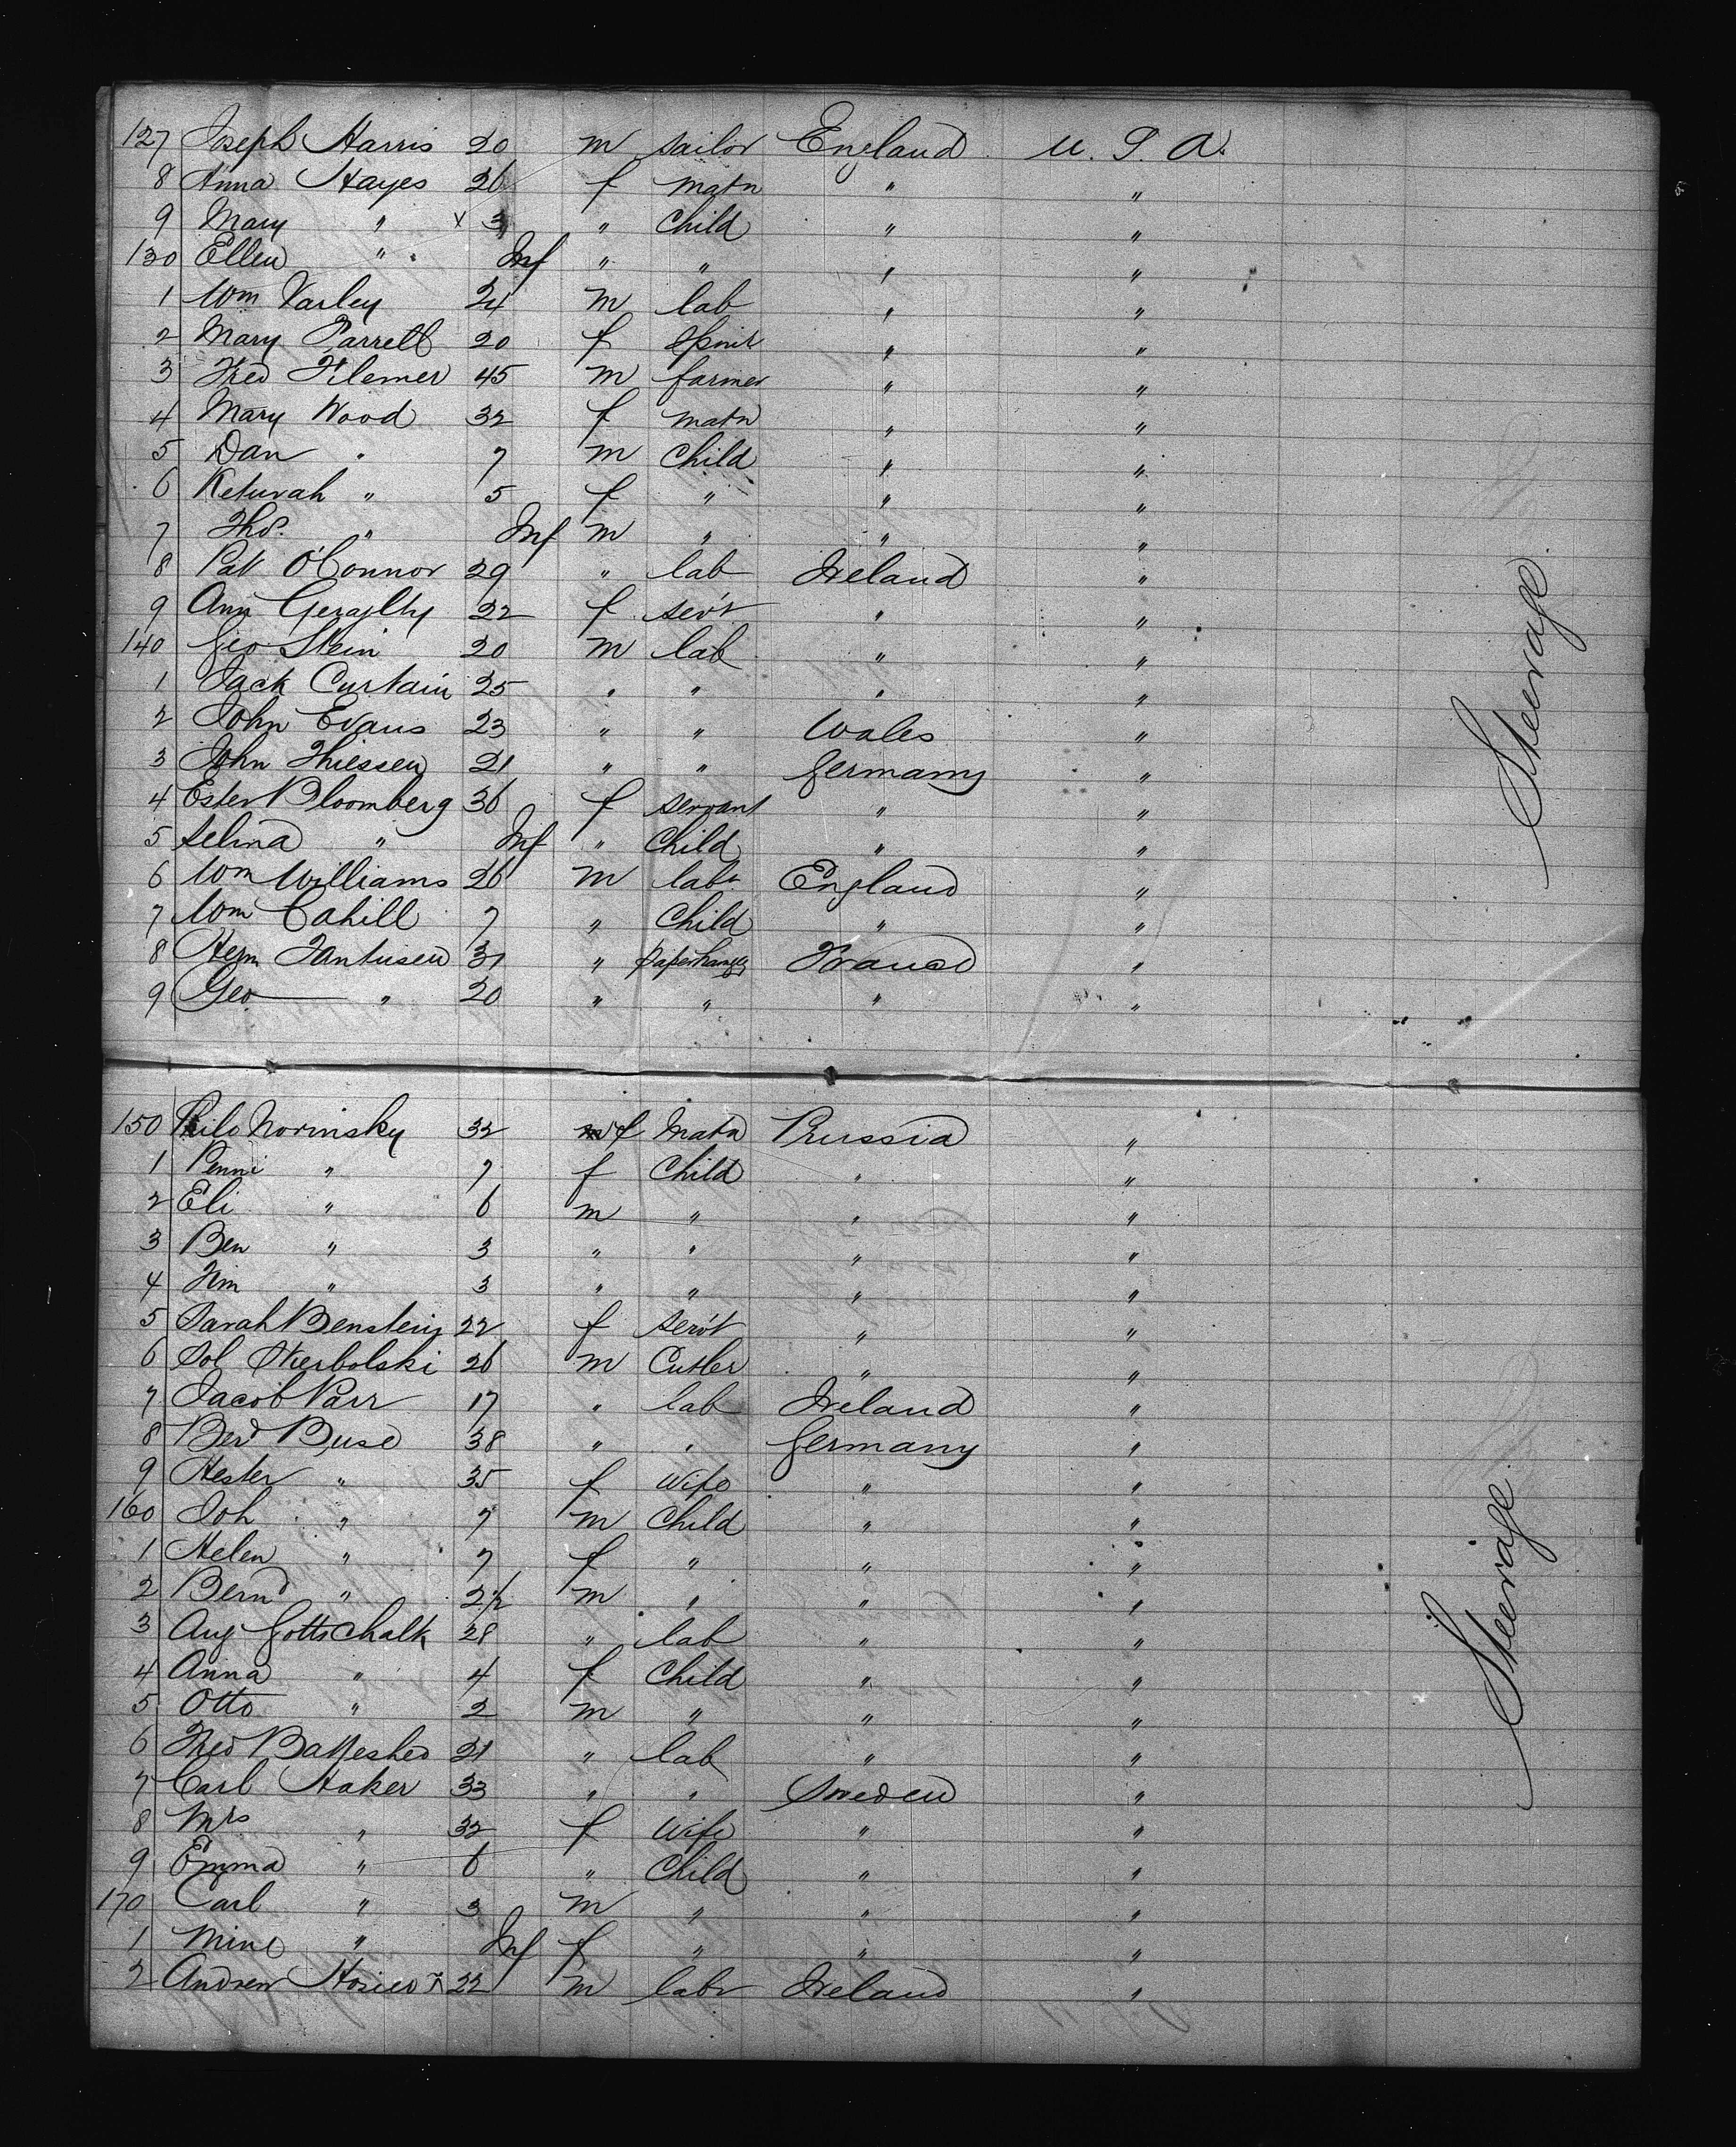 127 Joseph Harris 20 m sailor England U. S. A.
8 Anna Hayes 26 f matn " "
9 Mary " x 3 " Child " "
130 Ellen " Inf " " " "
1 Wm Varley 24 m lab " "
2 Mary Parrett 20 f Spins " "
3 Fred Filemer 45 m farmer " "
4 Mary Wood 32 f matn " "
5 Dan " 7 m Child " "
6 Keturah " 5 f " " "
7 Thos. " Inf m " " "
8 Pat O'Connor 29 " lab Ireland "
9 Ann 22 f serv't " "
140 Geo Stein 20 m lab " "
1 Jack Curtain 25 " " " "
2 John Evans 23 " " Wales "
3 John Thiessen 21 " " Germany "
4 Ester Bloomberg 36 f servant " "
5 Selina " Inf " Child " "
6 Wm Williams 26 m labr England "
7 Wm Cahill 7 " Child " "
8 Herm 31 " paperhanger France "
9 Geo " 20 " " " "
150 Norinsky 32 f Matn Prussia "
1 Penni " 7 f Child " "
2 Eli " 6 m " " "
3 Ben " 3 " " " "
4 Tim " 3 " " " "
5 Sarah Benstein 22 f serv't " "
6 Sol 26 m Cutler " "
7 Jacob Parr 17 " lab Ireland "
8 Buse 38 " " Germany "
9 Hester " 35 f wife " "
160 Joh " 7 m Child " "
1 Helen " 7 f " " "
2 Bernd " 2½ m " " "
3 Aug Gottschalk 28 " lab " "
4 Anna " 4 f Child " "
5 Otto " 2 m " " "
6 Fred 21 " lab " "
7 Carl Haker 33 " " Sweden "
8 Mrs " 32 f Wife " "
9 Emma " 6 " Child " "
170 Carl " 3 m " " "
1 Mine " Inf f " " "
2 Andrew x 22 m labr Ireland "
Steerage
Steerage